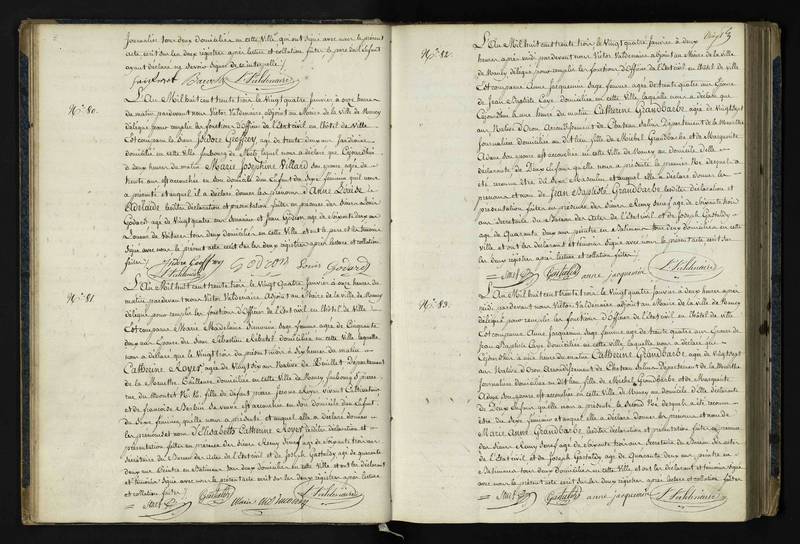 Journalier tous deux Domiciliés en cette Ville, qui ont signé avec nous le présent
acte écrit sur les deux registres après lecture et collation faites le père de l'Enfant
ayant déclaré ne savoir signer de interpellé ./.
N.° 80.
L'An Mil huit cent trente trois le Vingt quatre Janvier à onze heures
du matin pardevant nous Victor Valdenaire adjoint au Maire de la Ville de Nancy
délégué pour remplir les fonctions d'Officier de l'Etat civil en l'hôtel de Ville
Est comparu le Sieur Isidore Geoffroy, agé de trente deux ans Jardinier,
domicilié en cette Ville faubourg de Metz lequel nous a déclaré que Cejourd'hui
à deux heures du matin Marie Josephine Villard son épouse agée de
trente ans est accouchée en son domicile d'un Enfant du Sexe féminin qu'il nous
a présenté et auquel il a déclaré donner les prénoms d'Anne Louise
Adelaïde lesdites déclaration et présentation faites en présence des Sieurs
Godard agé de Vingt quatre ans
Loueur de Voitures tous deux domiciliés en cette Ville et ont le père et les témoins
signé avec nous le présent acte écrit sur les deux registres après lecture et collation
faites ./.
Isidore Geoffroy Louis Godard
N.° 81.
L'An Mil huit cent trente trois le Vingt quatre Janvier à onze heures du
matin pardevant nous Victor Valdenaire Adjoint au Maire de la Ville de Nancy
délégué pour remplir les fonctions d'Officier de l'Etat civil en l'hôtel de Ville
Est comparue Marie Madelaine sage femme agée de Cinquante
deux ans Epouse du Sieur Sébastien domicilié en cette Ville laquelle
nous a déclaré que le Vingt trois du présent mois à dix heures du matin
Catherine Royer agée de Vingt six ans Native de Département
de la Meurthe Tailleuse domiciliée en cette Ville de Nancy faubourg St pierre
rue du Montet fille de défunt pierre Jérome Royer vivant Cultivateur
et de françoise sa veuve est accouchée en son domicile d'un Enfant
du Sexe féminin, qu'elle nous a présenté et auquel elle a déclaré donner
les prénoms et nom d'Elisabeth Catherine Royer lesdites déclaration et
présentation faites en présence des Sieurs Remy agé de Soixante trois ans
Secrétaire du Bureau des actes de l'Etat civil et de Joseph Gastaldy agé de quarante
deux ans Peintre en Batiment tous deux domiciliés en cette Ville et ont les déclarant
et témoins signé avec nous le présent acte écrit sur les deux registres après lecture
et collation faites ./.
N.° 82.
L'An Mil huit cent trente trois le Vingt quatre Janvier à deux
heures après midi pardevant nous Victor Valdenaire adjoint au Maire de la Ville
de Nancy délégué pour remplir les fonctions d'Officier de l'Etat civil en l'hôtel de Ville
Est comparue Anne Jacquemin Sage femme agée de trente quatre ans Epouse
de Jean Baptiste domiciliée en cette Ville laquelle nous a déclaré que
Cejourd'hui à une heure du matin Catherine Grandbarbe agée de Vingt sept
ans Native d'Oron Arrondissement de Chateau Salins Département de la Meurthe
Journalière domiciliée au dit lieu fille de Michel Grandbarbe et de Marguerite
Adam son épouse est accouchée en cette Ville de Nancy au domicile d'elle
déclarante de Deux Enfans qu'elle nous a présenté le premier Né desquels a
été reconnu être du Sexe Masculin et auquel elle a déclaré donner les
prénoms et nom de Jean Baptiste Grandbarbe lesdites déclaration et
présentation faites en présence des Sieurs Remy agé de Soixante trois
ans Secrétaire du Bureau des Actes de l'Etat civil et de Joseph Gastaldy
agé de Quarante deux ans peintre en Batiment tous deux domiciliés en cette
Ville et ont les déclarant et témoins signé avec nous le présent acte écrit sur
les deux registres après lecture et collation faites ./.
anne jacquemin
N.° 83.
L'An Mil huit cent trente trois le Vingt quatre Janvier à deux heures après
midi pardevant nous Victor Valdenaire Adjoint au Maire de la Ville de Nancy
délégué pour remplir les fonctions d'Officier de l'Etat civil en l'hôtel de Ville
Est comparue Anne Jacquemin Sage femme agée de trente quatre ans Epouse de
Jean Baptiste domiciliée en cette Ville, laquelle nous a déclaré que
Cejourd'hui à une heure du matin Catherine Grandbarbe agée de Vingt sept
ans Native d'Oron Arrondissement de Chateau Salins Département de la Meurthe
Journalière domiciliée au dit lieu fille de Michel Grandbarbe et de Marguerite
Adam son épouse est accouchée en cette Ville de Nancy au domicile d'elle déclarante
de Deux Enfans qu'elle nous a présenté, le Second Né desquels a été reconnu
être du Sexe féminin et auquel elle a déclaré donner les prénoms et nom de
Marie Anne Grandbarbe lesdites déclaration et présentation faites en présence
des Sieurs Remy agé de Soixante trois ans Secrétaire du Bureau des actes
de l'Etat civil et de Joseph Gastaldy agé de Quarante deux ans, peintre en
Batiment tous deux domiciliés en cette Ville et ont les déclarant et témoins signé
avec nous le présent acte écrit sur les deux registres après lecture et collation faites
anne jacquemin